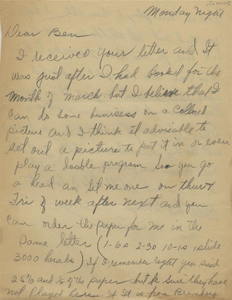 Monday Night
Dear Ben
I received your letter and It
was just after I had booked for the
Month of March but I believe that I
can do some business on a Colored
picture and I think it advisable to
set out a picture to put it in or even
play a double program so you go
a head an let me one on thur
Fri of week after next and you
can order the paper for me in the
Same letter (1-6s 2-3s 10-1s slide
3000 heralds) If I remember right you said
25% and ½ of the paper but be sure they have
not played